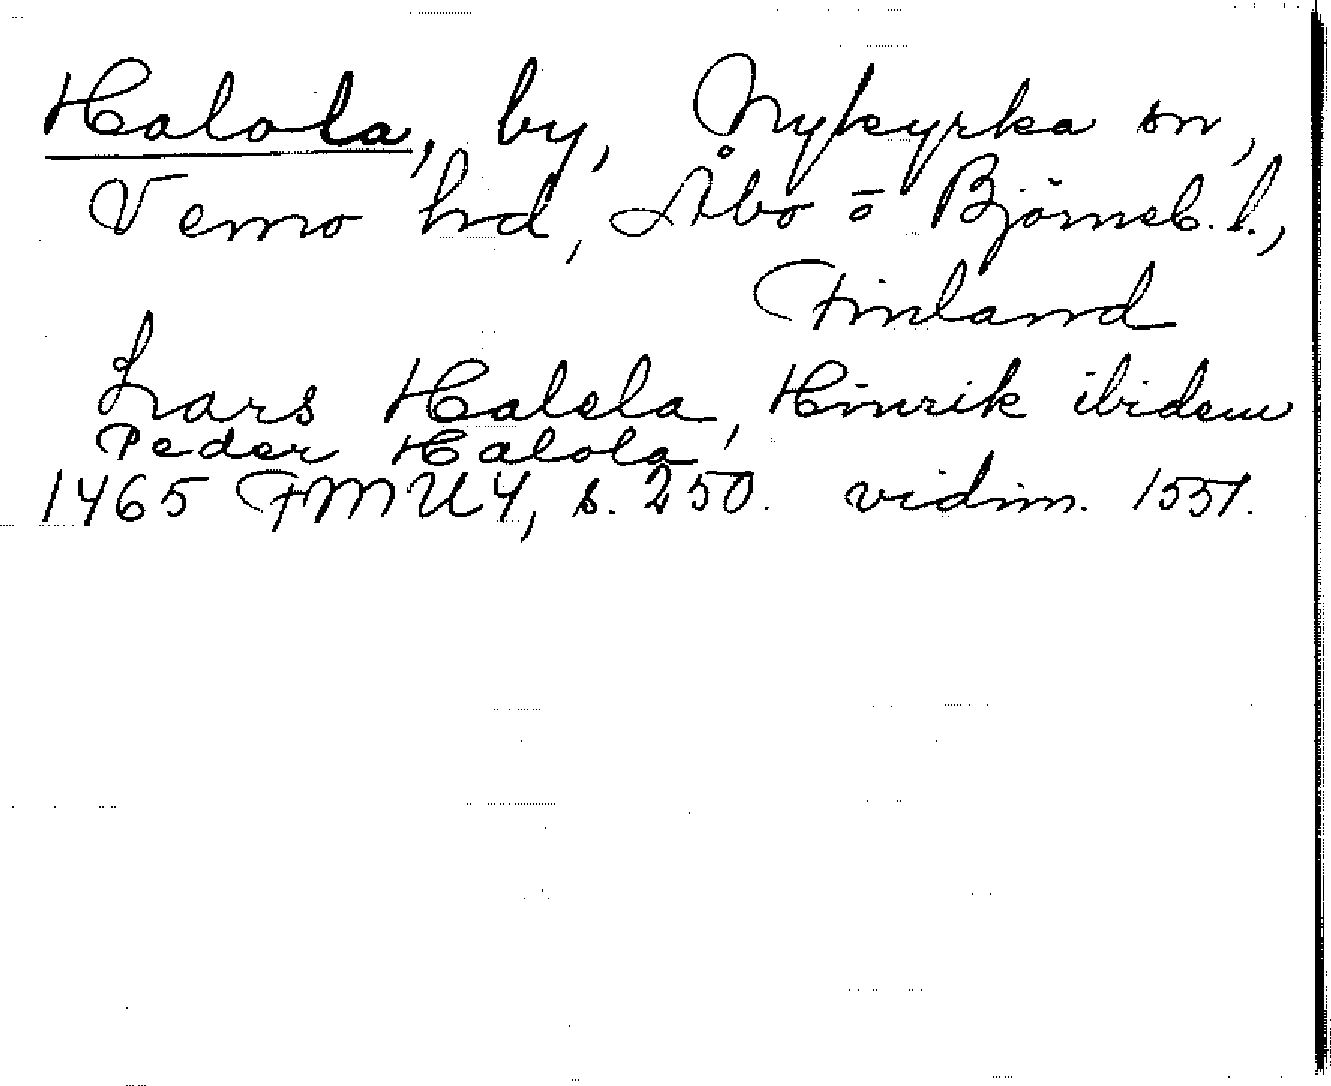 Halola, by, Nykyrka sn,
Vemo hd, Åbo o Björneb. l.,
Finland
Lars Halola, Hinrik ibidem
Peder Halola
1465 FMU 4, s. 250. vidim. 1551.